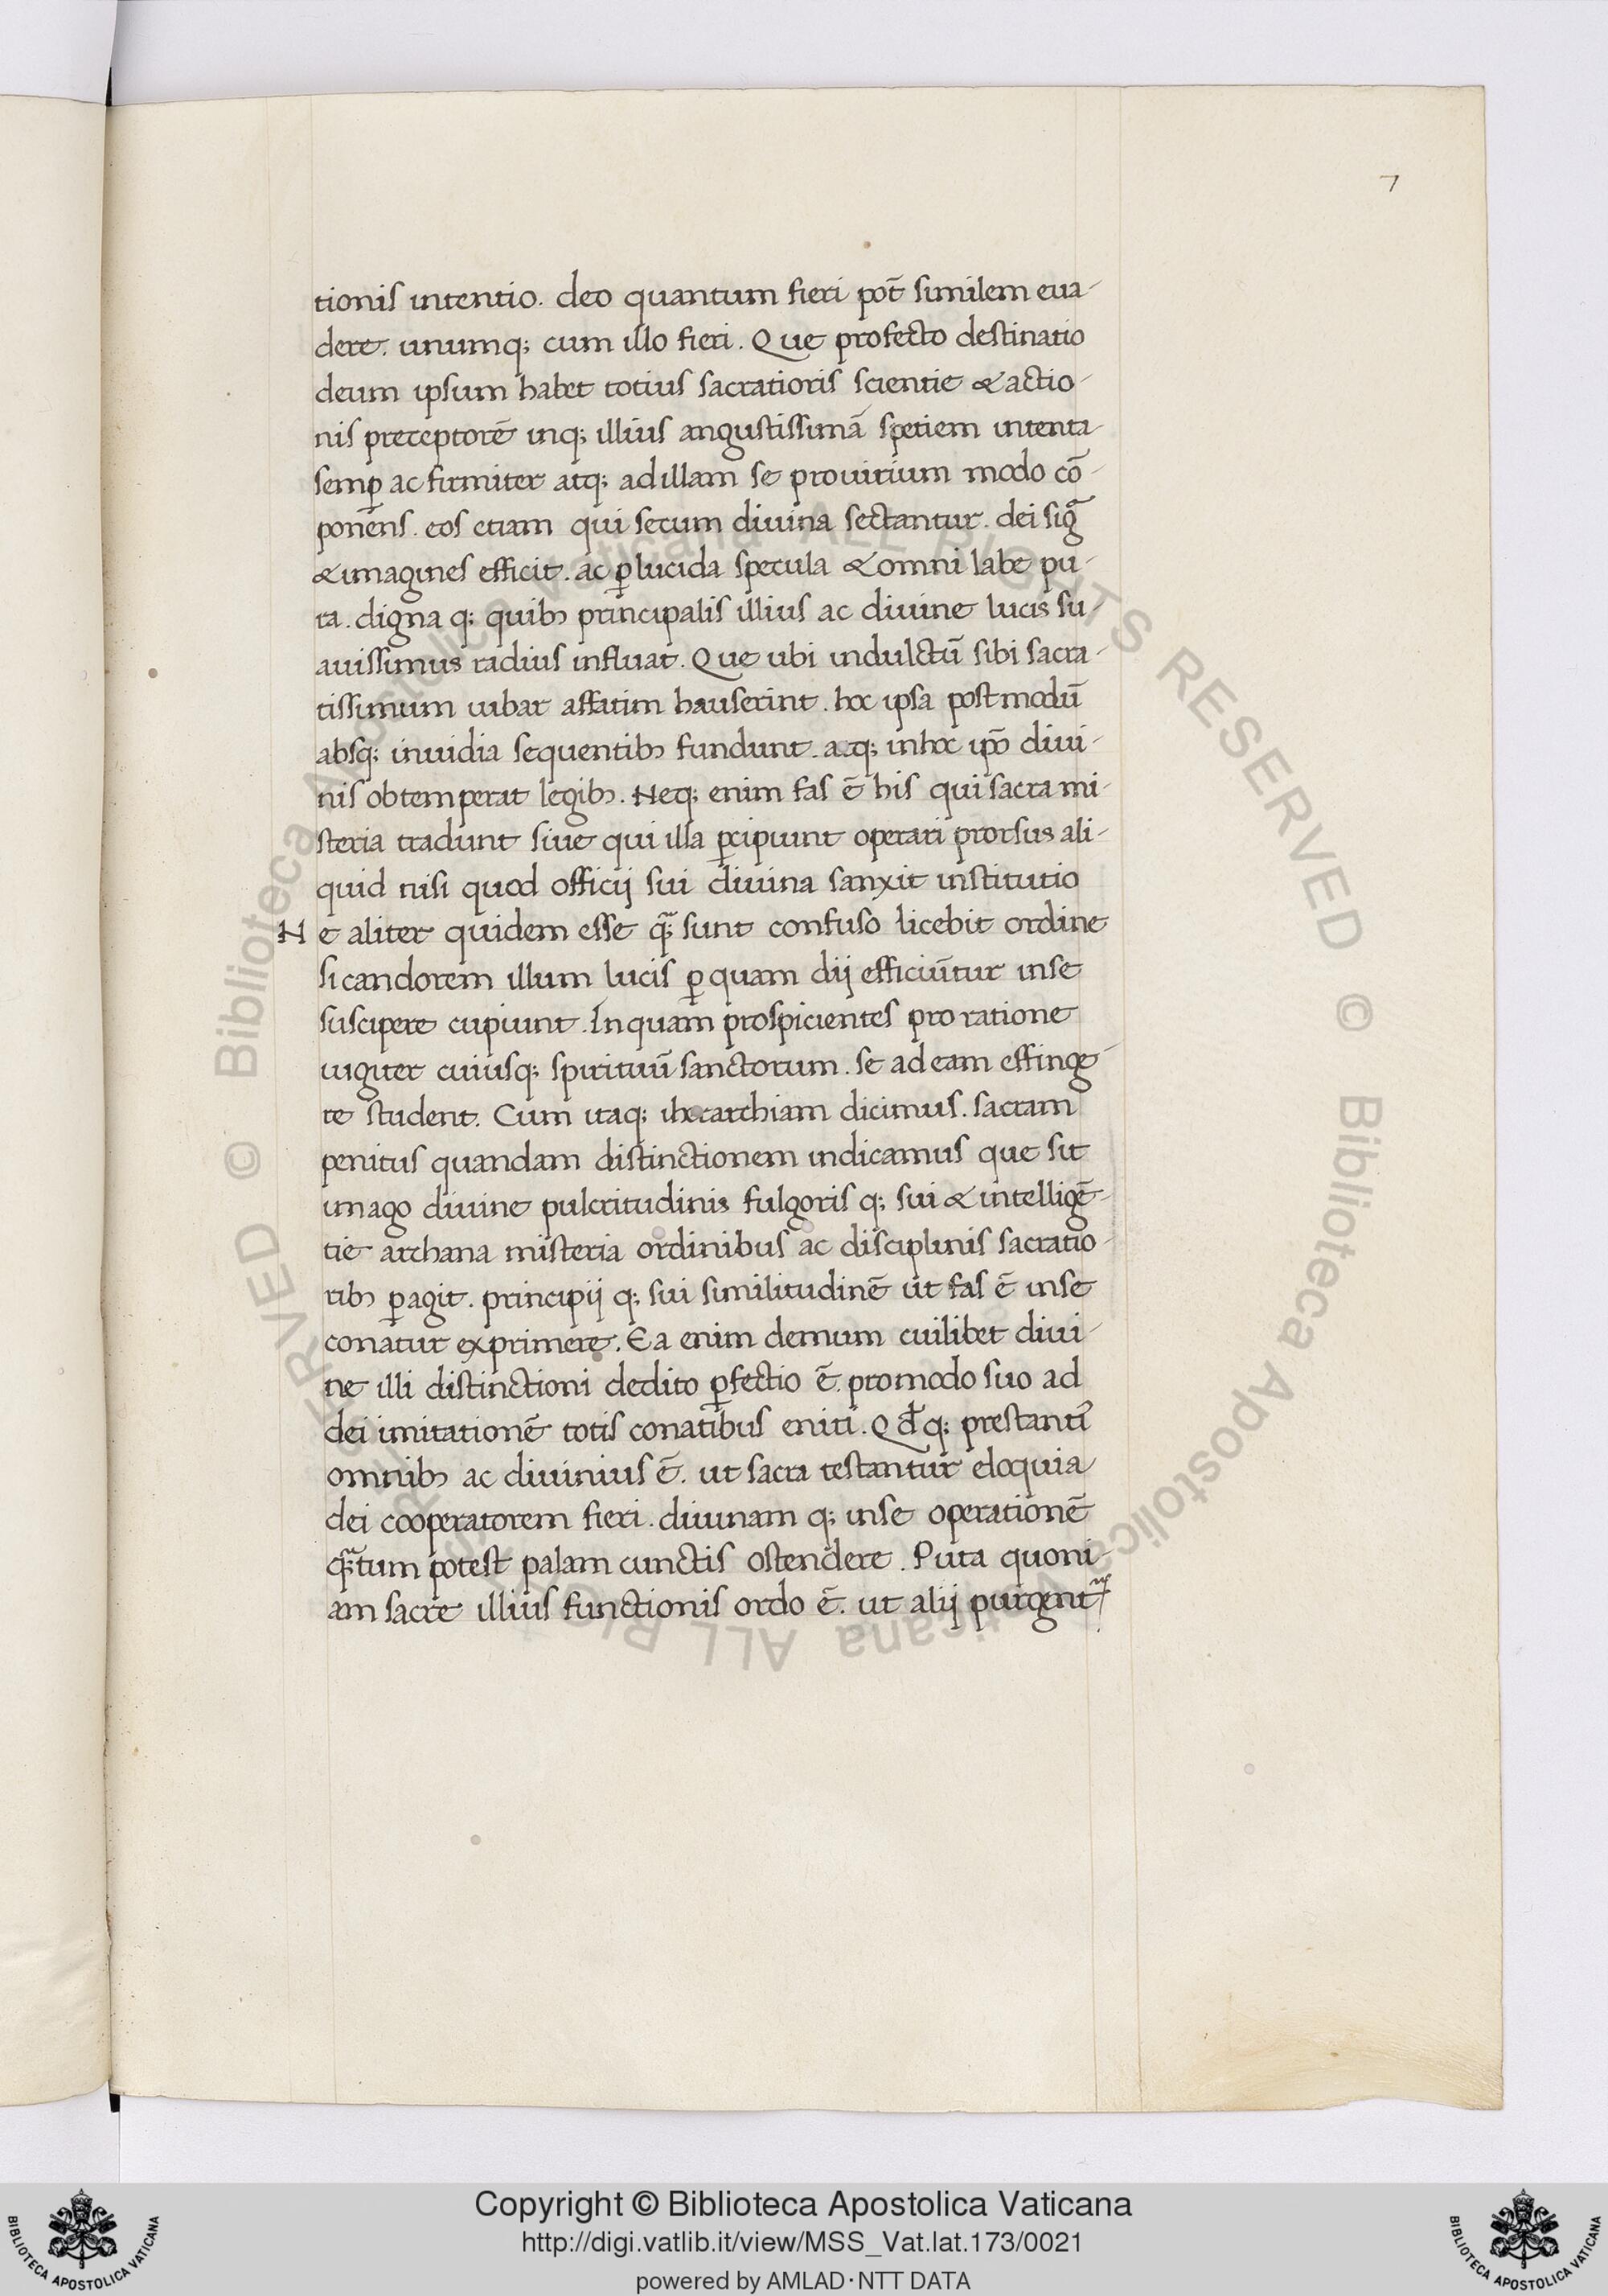 7
tionis intentio. deo quantum fieri pot̄ similem eua-
dere. unumq; cum illo fieri. Que profecto destinatio
deum ipsum habet totius sacratioris scientie & actio-
nis preceptorē inq; illius angustissimā spetiem intenta
semꝑ ac firmiter atq; ad illam se prouirium modo cō-
ponens. eos etiam qui secum diuina sectantur. dei sigᷓ
& imagines efficit. ac ꝑlucida specula & omni labe pu-
ra. digna q; quibꝫ principalis illius ac diuine lucis su-
auissimus radius influat. Que ubi indulctū sibi sacra-
tissimum iubar affatim hauserint. hoc ipsa postmodū
absq; inuidia sequentibꝫ fundunt. atq; inhoc ip̄o diui-
nis obtemperat legibꝫ. Neq; enim fas ē his qui sacra mi-
steria tradunt siue qui illa ꝑcipiunt operari prorsus ali-
quid nisi quod officij sui diuina sanxit institutio
Ne aliter quidem esse qᷓ sunt confuso licebit ordine
si candorem illum lucis ꝑ quam dij efficiūtur inse
suscipere cupiunt. Inquam prospicientes pro ratione
uigiter cuiusq; spirituū sanctorum. se ad eam effinge-
re student. Cum itaq; iherarchiam dicimus. sacram
penitus quandam distinctionem indicamus que sit
imago diuine pulcritudinis fulgoris q; sui & intelligē-
tie archana misteria ordinibus ac disciplinis sacratio-
ribꝫ ꝑagit. principij q; sui similitudinē ut fas ē inse
conatur exprimere. Ea enim demum cuilibet diui-
ne illi distinctioni dedito ꝑfectio ē. promodo suo ad
dei imitationē totis conatibus eniti. Qđq; prestanti᷒
omnibꝫ ac diuinius ē. ut sacra testantur eloquia
dei cooperatorem fieri. diuinam q; inse operationē
qᷓtum potest palam cunctis ostendere. Puta quoni-
am sacre illius functionis ordo ē. ut alij purgent᷑
© Biblioteca Apostolica Vaticana ALL RIGHTS RESERVED © Biblioteca Apostolica Vaticana ALL RIGHTS RESERVED
Copyright © Biblioteca Apostolica Vaticana
http://digi.vatlib.it/view/MSS_Vat.lat.173/0021
powered by AMLAD·NTT DATA
BIBLIOTECA APOSTOLICA VATICANA
BIBLIOTECA APOSTOLICA VATICANA